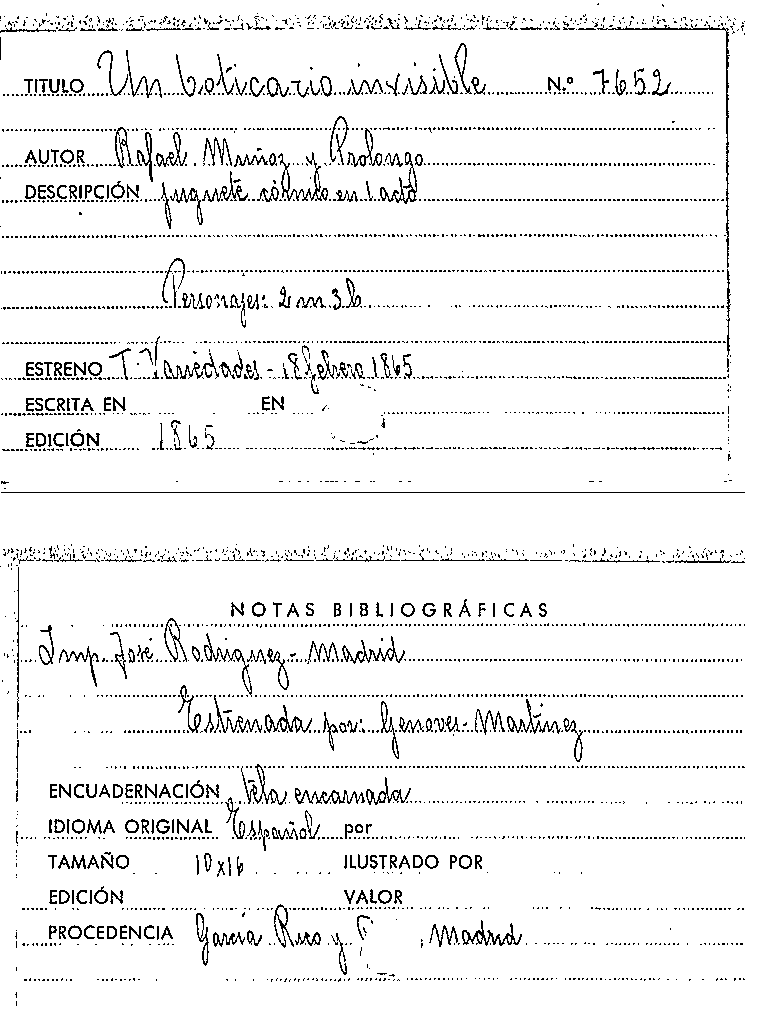 TITULO Un boticario invisible N.º 7652
AUTOR Rafael Muñoz y Prolongo
DESCRIPCIÓN Juguete cómico en 1 acto
Personajes: 2 m 3 h
ESTRENO T. Variedades - 18 febrero 1865
ESCRITA EN EN
EDICIÓN 1865
NOTAS BIBLIOGRÁFICAS
Imp. José Rodriguez - Madrid
Estrenada por: Genoves - Martinez
ENCUADERNACIÓN tela encarnada
IDIOMA ORIGINAL Español por
TAMAÑO 10x16 ILUSTRADO POR
EDICIÓN VALOR
PROCEDENCIA García Rico y , Madrid